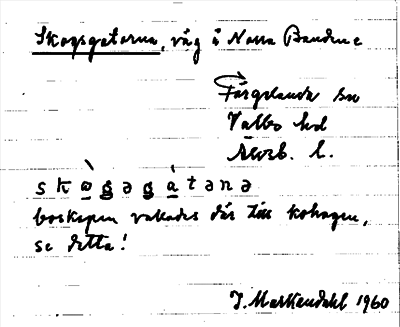 Skogsgatorna, väg å Norra Bandene
Färgelanda sn
Valbo hd
Älvsb. l.
skògəgàtənə
boskapen vallades där till kohagen,
se detta!
J. Markendahl 1960